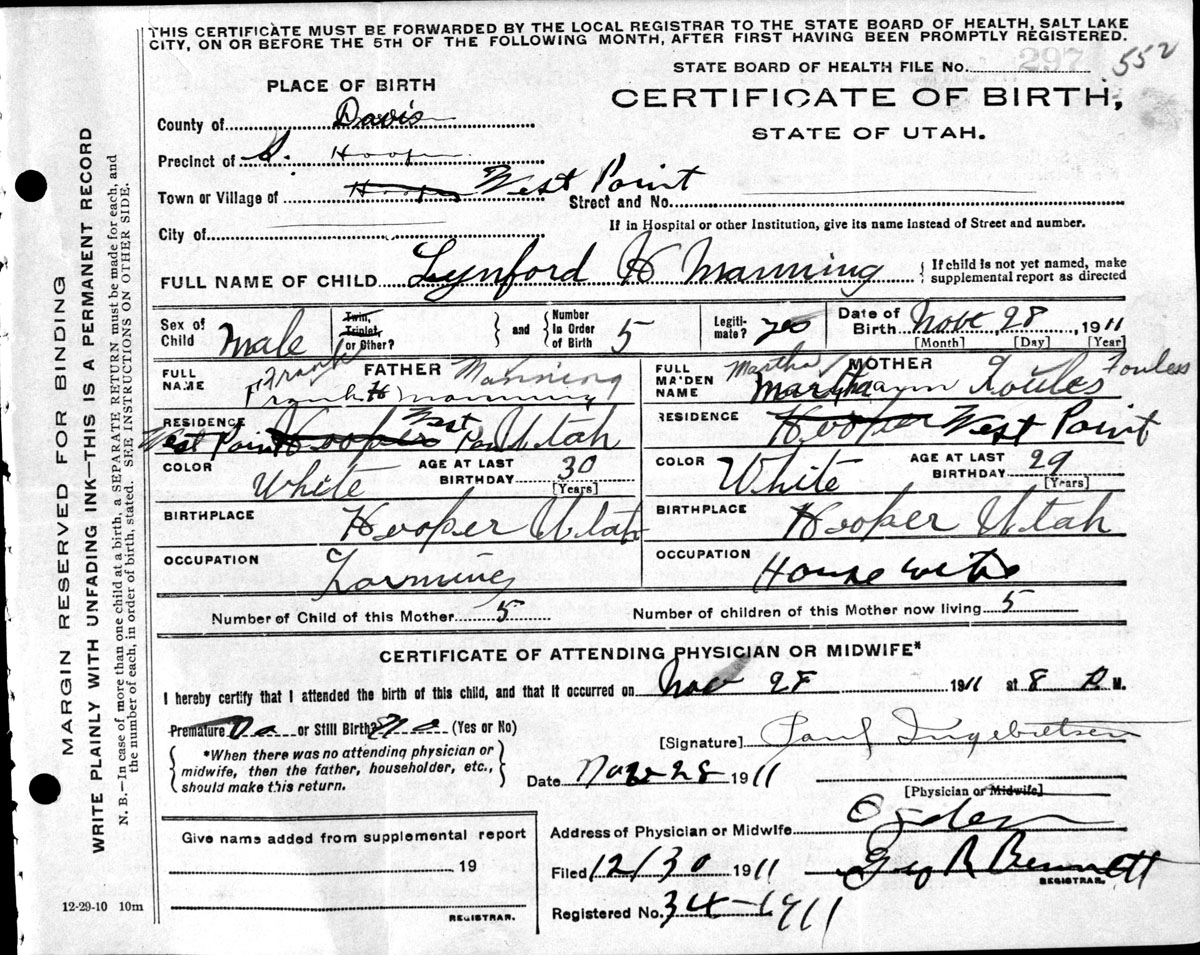 THIS CERTIFICATE MUST BE FORWARDED BY THE LOCAL REGISTRAR TO THE STATE BOARD OF HEALTH, SALT LAKE
CITY, ON OR BEFORE THE 5TH OF THE FOLLOWING MONTH, AFTER FIRST HAVING BEEN PROMPTLY REGISTERED.
STATE BOARD OF HEALTH FILE No. 297 552
PLACE OF BIRTH
CERTIFICATE OF BIRTH,
STATE OF UTAH.
County of Davis
Precinct of S. Hooper
Town or Village of Hooper West Point
Street and No.
City of
If in Hospital or other Institution, give its name instead of Street and number.
FULL NAME OF CHILD Lynford H Manning
If child is not yet named, make
supplemental report as directed
Sex of Child Male
Twin, Triplet, or Other?
and
Number in Order of Birth 5
Legiti- mate? yes
Date of Birth Nov 28, 1911
[Month] [Day] [Year]
FULL NAME
FATHER
Frank Manning
Frank H Manning
FULL MAIDEN NAME
MOTHER
Martha Fouless
Marthaann Foules
RESIDENCE
West Point Hooper West Point Utah
RESIDENCE
Hooper West Point
COLOR White
AGE AT LAST BIRTHDAY 30
[Years]
COLOR White
AGE AT LAST BIRTHDAY 29
[Years]
BIRTHPLACE Hooper Utah
BIRTHPLACE Hooper Utah
OCCUPATION Farming
OCCUPATION House wife
Number of Child of this Mother 5
Number of children of this Mother now living 5
CERTIFICATE OF ATTENDING PHYSICIAN OR MIDWIFE*
I hereby certify that I attended the birth of this child, and that it occurred on Nov 28 1911 at 8 P M.
Premature No or Still Birth? No (Yes or No)
*When there was no attending physician or
midwife, then the father, householder, etc.,
should make this return.
[Signature] Paul Ingebretsen
Date Nov 28 1911
[Physician or Midwife]
Give name added from supplemental report
19
REGISTRAR.
Address of Physician or Midwife Ogden
Filed 12/30 1911
Geo R Bennett
REGISTRAR.
Registered No. 34-1911
12-29-10 10m
MARGIN RESERVED FOR BINDING
WRITE PLAINLY WITH UNFADING INK—THIS IS A PERMANENT RECORD
N. B.—In case of more than one child at a birth, a SEPARATE RETURN must be made for each, and
the number of each, in order of birth, stated. SEE INSTRUCTIONS ON OTHER SIDE.